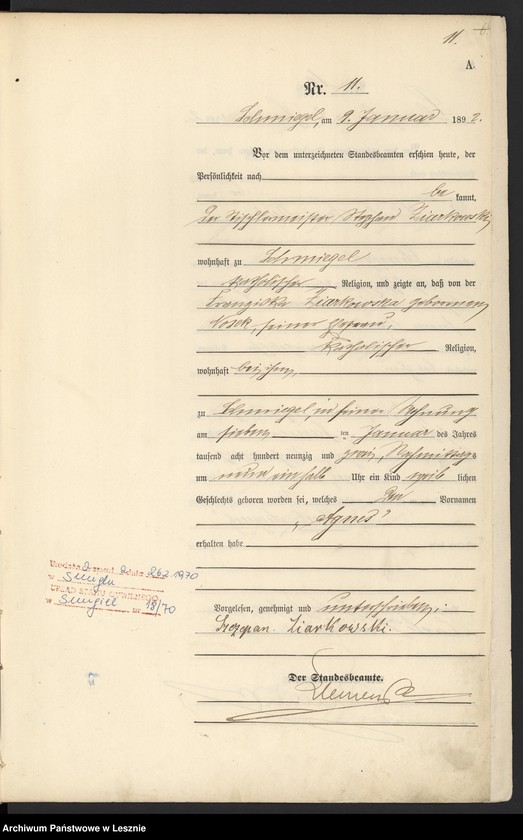 11.
A.
Nr. 11.
Schmiegel, am 9. Januar 1892.
Vor dem unterzeichneten Standesbeamten erschien heute, der
Persönlichkeit nach
be kannt,
der Tischlermeister Stephan Ziarkowski,
wohnhaft zu Schmiegel
katholischer Religion, und zeigte an, daß von der
Franziska Ziarkowska geborenen
Nosek, seiner Ehefrau,
katholischer Religion,
wohnhaft bei ihm,
zu Schmiegel, in seiner Wohnung
am sieben ten Januar des Jahres
tausend acht hundert neunzig und zwei, Nachmittags
um neun einhalb Uhr ein Kind weib lichen
Geschlechts geboren worden sei, welches den Vornamen
„Agnes"
erhalten habe
Vorgelesen, genehmigt und unterschrieben:
Szczepan Ziarkowski.
Der Standesbeamte.
dnia 26 2 1970
w Śmiglu
URZĄD STANU CYWILNEGO
w Śmigiel nr 18/70
Archiwum Państwowe w Lesznie